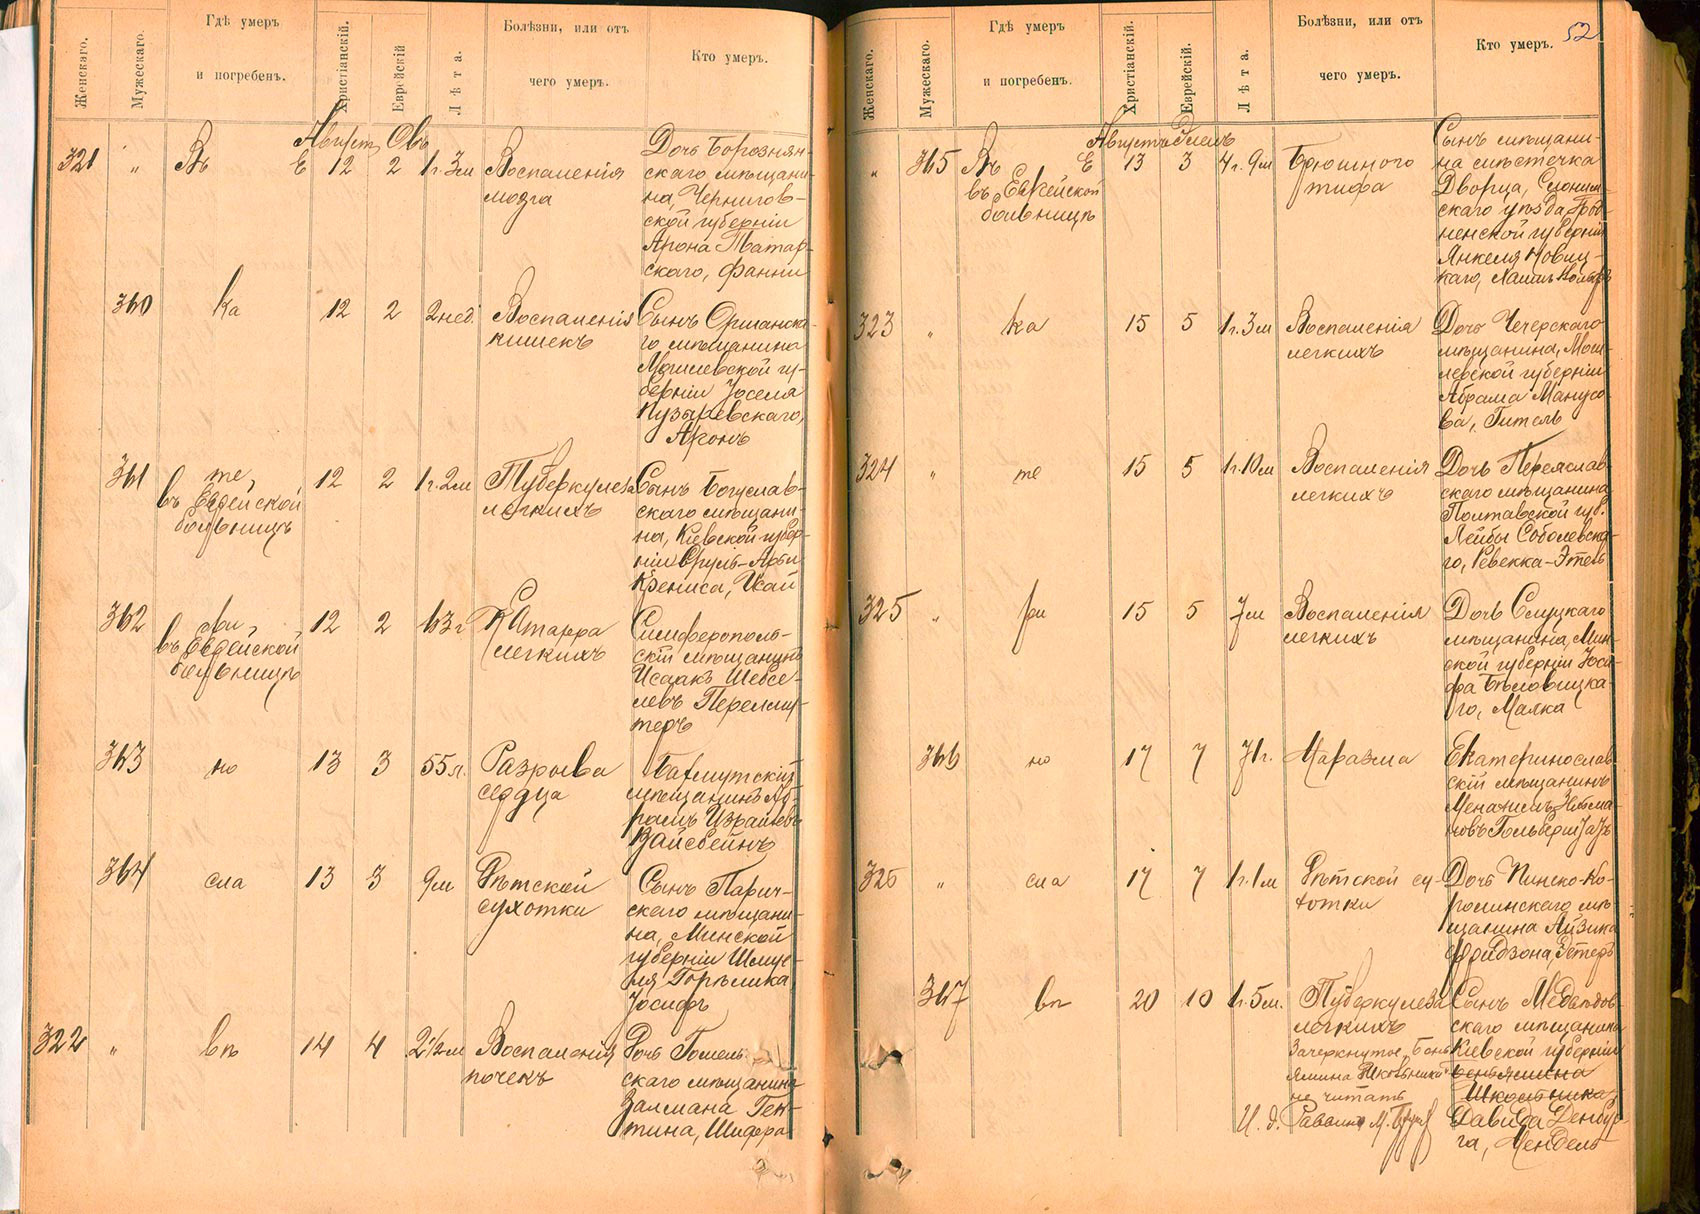 Женскаго.
Мужескаго.
Гдѣ умеръ
и погребенъ.
Христіанскій.
Еврейскій
Лѣта.
Болѣзни, или отъ
чего умеръ.
Кто умеръ.
Августъ Овъ
321 " Въ Е 12 2 1г. 3м Воспаленія
мозга
Дочь Борзнян-
скаго мѣщани-
на, Чернигов-
ской губерніи
Арона Татар-
скаго, Фанни
360 ка 12 2 2 нед. Воспаленія
кишекъ
Сынъ Оршанска-
го мѣщанина
Могилевской гу-
берніи Іоселя
Пузыревскаго,
Аронъ
361 те, 12 2 1г. 2м Туберкулеза
въ Еврейской
больницѣ
легкихъ
Сынъ Богуслав-
скаго мѣщани-
на, Кіевской губер-
ніи Сруль-Арьи
Крениса, Исай
362 ри, 12 2 63 г Катарра
въ Еврейской
больницѣ
легкихъ
Симферополь-
скій мѣщанинъ
Исаакъ Шевсе-
левъ Перельму-
теръ
363 но 13 3 55 л. Разрыва
сердца
Бахмутскій
мѣщанинъ Аб-
рамъ Израилевъ
Вайсбейнъ
364 сла 13 3 9м Дѣтской
сухотки
Сынъ Парич-
скаго мѣщани-
на, Минской
губерніи Шмуе-
ля Горѣлика
Іосифъ
322 " вѣ 14 4 2½м Воспаленія
почекъ
Дочь Гомель-
скаго мѣщанина
Залмана Ген-
тина, Шифра
52
Женскаго.
Мужескаго.
Гдѣ умеръ
и погребенъ.
Христіанскій.
Еврейскій.
Лѣта.
Болѣзни, или отъ
чего умеръ.
Кто умеръ.
Августъ Элюлъ
" 365 Въ Е 13 3 4г. 9м Брюшного
тифа
въ Еврейской
больницѣ
Сынъ мѣщани-
на мѣстечка
Дворца, Слоним-
скаго уѣзда, Грод-
ненской губерніи
Янкеля Новиц-
каго, Хаимъ
323 " ка 15 5 1г. 3м Воспаленія
легкихъ
Дочь Чечерскаго
мѣщанина, Моги-
левской губерніи
Абрама Манусо-
ва, Гитель
324 " те 15 5 1г. 10м Воспаленія
легкихъ
Дочь Переяслав-
скаго мѣщанина
Полтавской губ.
Лейбы Соболевска-
го, Ревекка-Этель
325 " ри 15 5 7м Воспаленія
легкихъ
Дочь Слуцкаго
мѣщанина, Мин-
ской губерніи Іоси-
фа Бѣловицка-
го, Малка
366 но 17 7 71г. Маразма
Екатеринослав-
скій мѣщанинъ
Менахимъ
новъ
326 " сла 17 7 1г. 1м Дѣтской су-
хотки
Дочь Пинско-Ка-
ролинскаго мѣ-
щанина Айзика
Фридзона, Эстеръ
367 вѣ 20 10 1г. 5м. Туберкулеза
легкихъ
Сынъ Медвѣдов-
скаго мѣщанина
Кіевской губерніи
Беньямина
Школьника
Давида Денбур-
га, Мендель
Зачеркнутое „Бень-
ямина Школьника"
не читать
И. д. Раввина М.